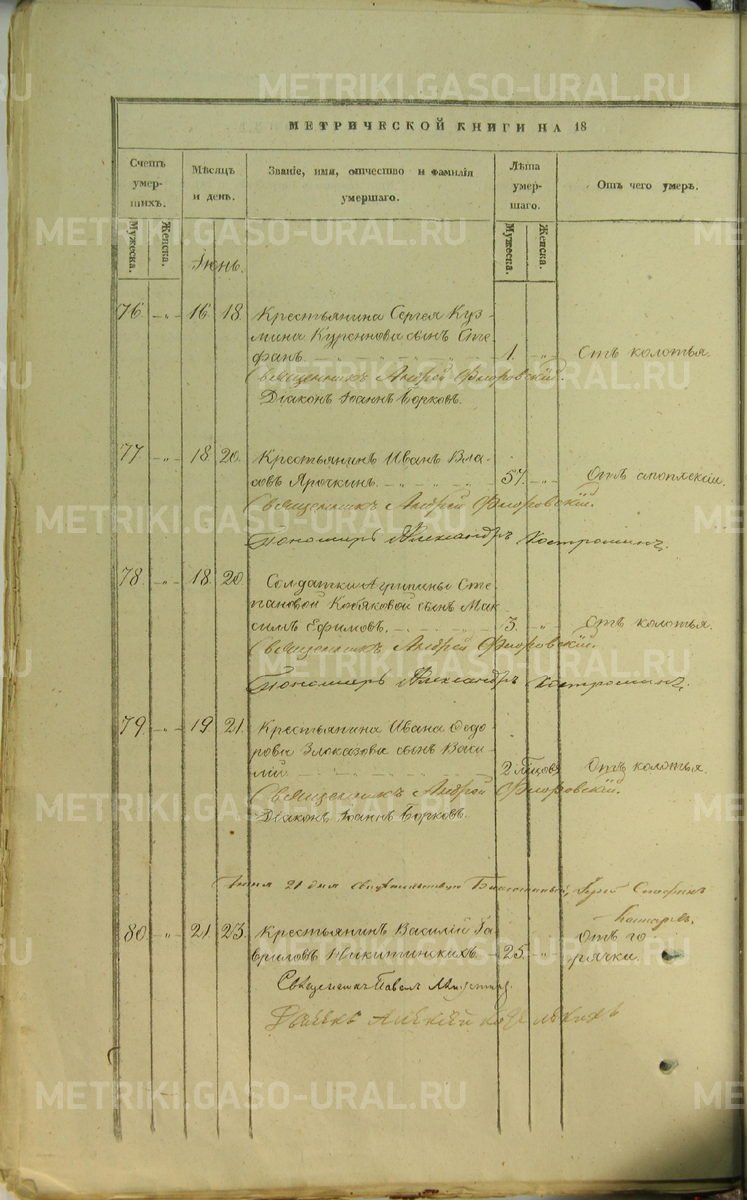 METRIKI.GASO-URAL.RU
МЕТРИЧЕСКОЙ КНИГИ НА 18
Счетъ умер-шихъ. Мѣсяцъ и день. Званіе, имя, отчество и фамилія умершаго. Лѣта умер-шаго. Отъ чего умеръ.
Мужеска. Женска. Мужеска. Женска.
Іюнь.
76 " 16 18. Крестьянина Сергея Куз-
мина Куренкова сынъ Сте-
фанъ 1. " Отъ колотья.
Священникъ Андрей Флоровскій.
Діаконъ Іоаннъ Борковъ.
77 " 18 20. Крестьянинъ Иванъ Вла-
совъ Ярочкинъ 57. " Отъ апоплексіи.
Священникъ Андрей Флоровскій.
Пономарь Александръ Костроминъ.
78. " 18. 20. Солдатки Агрипины Сте-
пановой Кобяковой сынъ Мак-
симъ Ефимовъ. 3. " Отъ колотья.
Священникъ Андрей Флоровскій.
Пономарь Александръ Костроминъ.
79. " 19. 21. Крестьянина Ивана Ѳедо-
рова Злоказова сынъ Васи-
лій 2 Отъ колотья.
Священникъ Андрей Флоровскій.
Діаконъ Іоаннъ Борковъ.
21 дня Благочинный, Іерей
80. " 21. 23. Крестьянинъ Василій Га-
вриловъ Никитинскихъ 25. " Отъ го-
рячки.
Священникъ Павелъ